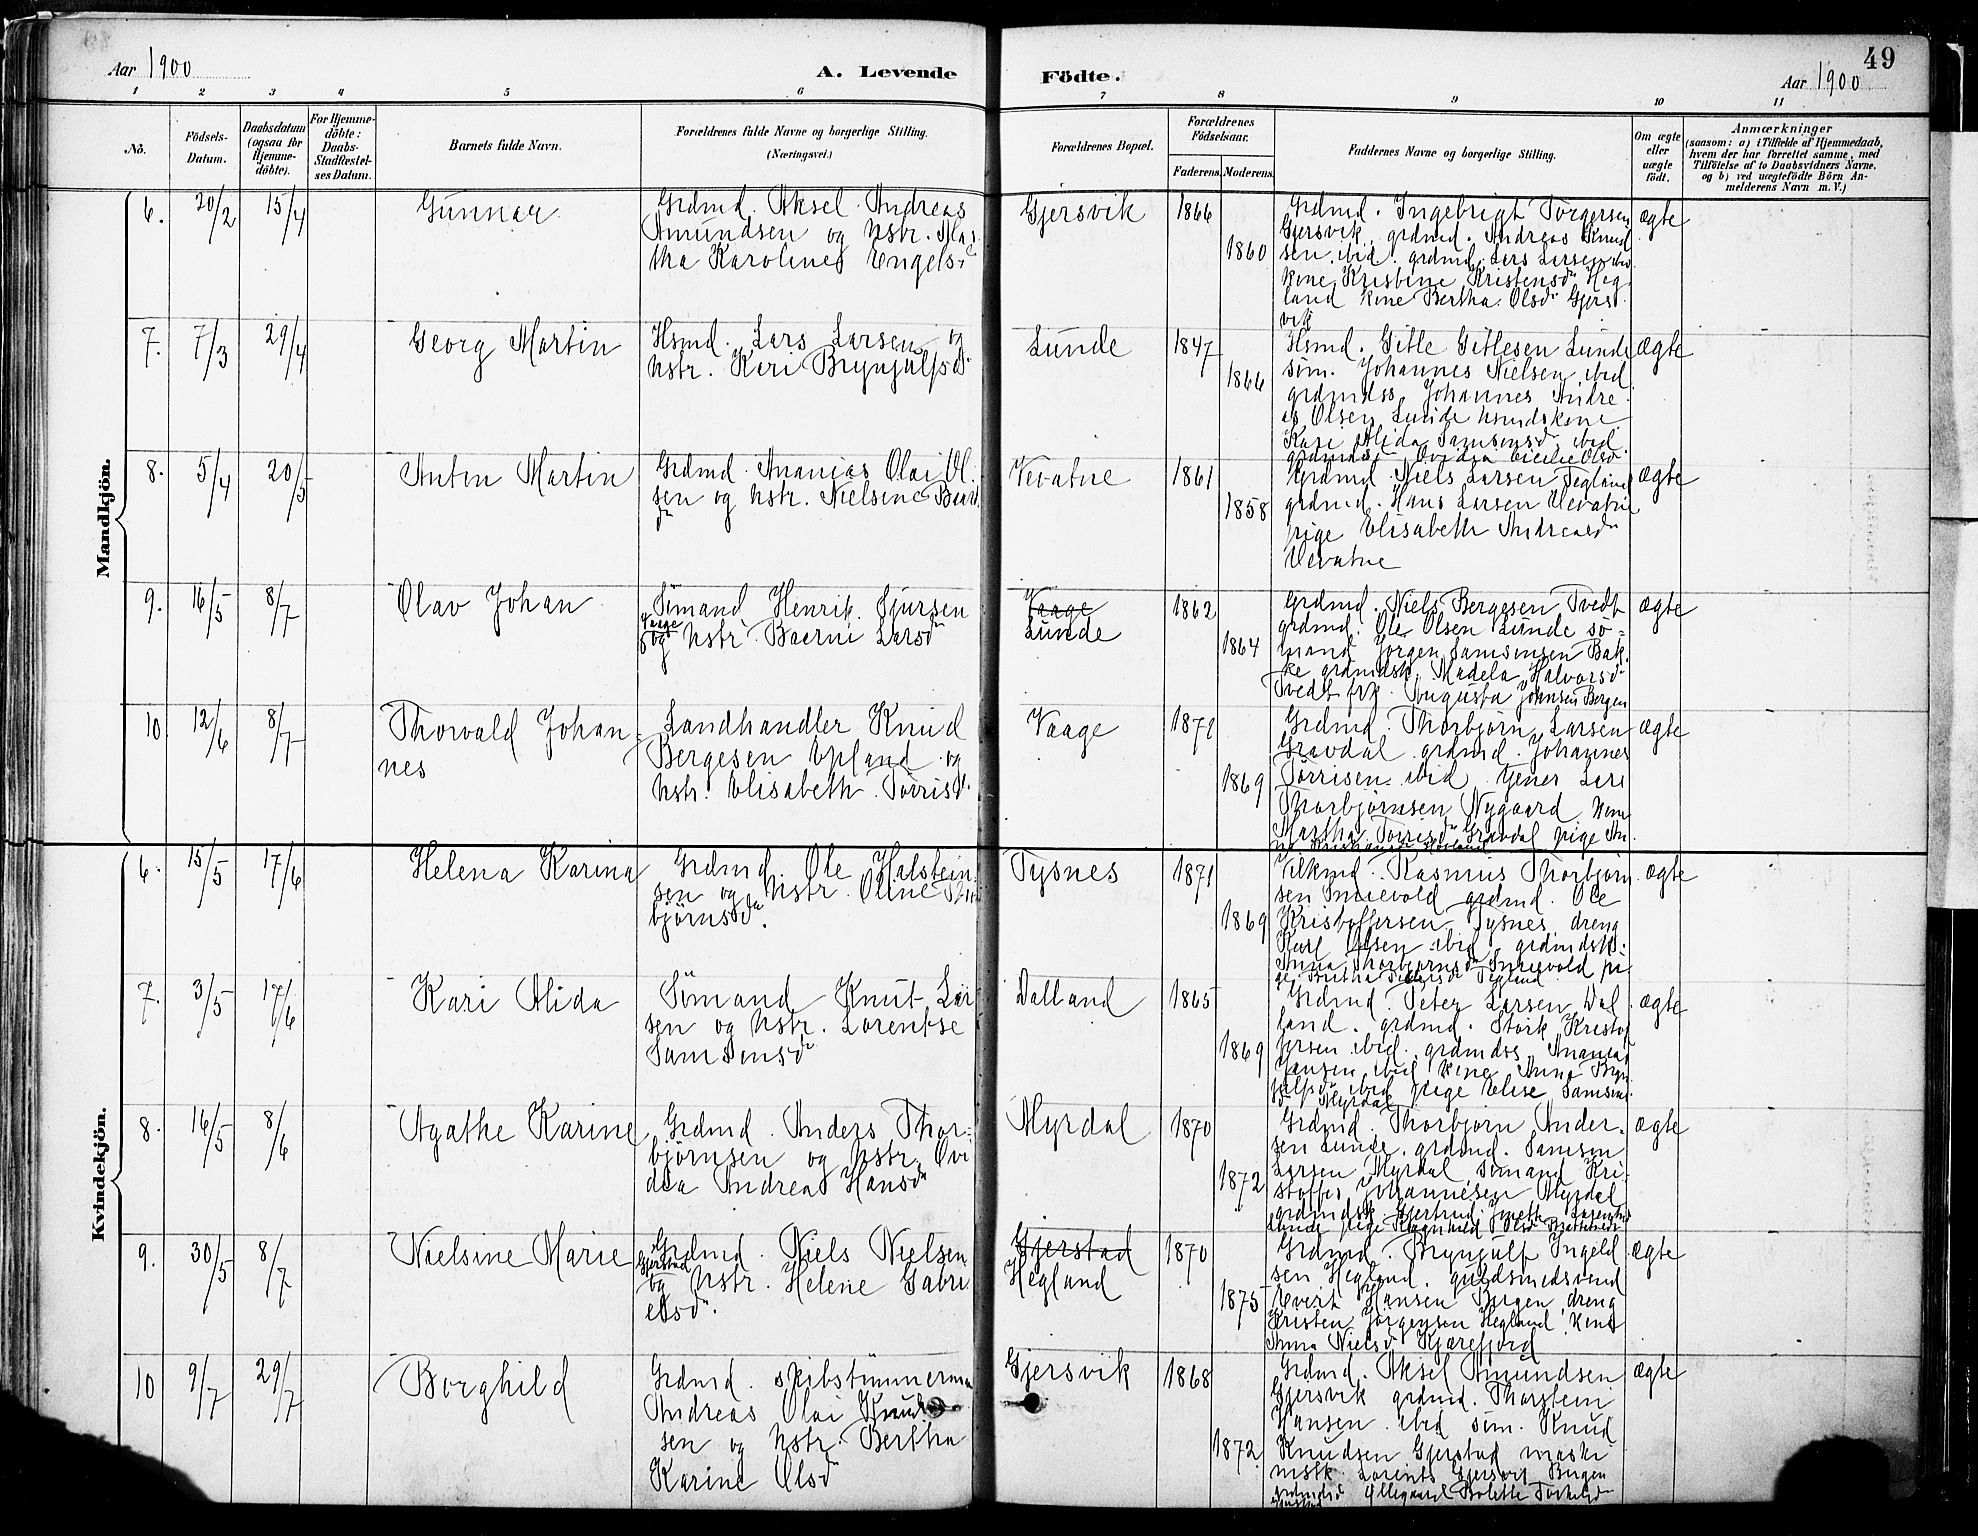 Aar 1900
A. Levende
Födte.
49
Aar 1900
1 2 3 4 5 6 7 8 9 10 11
No.
Födsels-Datum.
Daabsdatum (ogsaa for Hjemme-döbte).
For Hjemme-döbte: Daabs-Stadfæstel-ses Datum.
Barnets fulde Navn.
Forældrenes fulde Navne og borgerlige Stilling.
(Næringsvei.)
Forældrenes Bopæl.
Forældrenes Födselsaar.
Faderens. Moderens.
Faddernes Navne og borgerlige Stilling.
Om ægte eller uægte födt.
Anmærkninger
(saasom: a) i Tilfælde af Hjemmedaab, hvem der har forrettet samme, med Tilföielse af to Daabsvidners Navne. og b) ved uægtefödte Börn An-melderens Navn m. V.)
Mandkjön.
6. 20/2 15/4 Gunnar
Grdmd. Aksel Andreas
Amundsen og hstr. Mar
tha Karoline Engelsd
Gjersvik 1866 1860
Grdmd. Ingebrigt Torgersen
Gjersvik, grdmd. Andreas Knud
sen ibid. grdmd. Lars Larsen ibid
kone Kristine Kristensdr Heg
land kone Bertha Olsdr Gjers
vik
ægte
7. 7/3 29/4 Georg Martin
Hsmd. Lars Larsen og
hstr. Kari Brynjulfsd
Lunde 1847 1866
Hsmd. Gitle Gitlesen Lunde
söm. Johannes Nielsen ibid
grdmdss Johannes Andre
as Olsen Lunde hsmdskone
Kari Alida Samsonsd. ibid
ægte
8. 5/4 20/5 Anton Martin
Grdmd. Ananias Olai Ol
sen og hstr. Nielsine Baard
dr
Vevatne 1861 1858
Grdmd. Niels Larsen Tegland
grdmd. Hans Larsen Vevatne
pige Elisabeth Andreasdr
Vevatne
ægte
9. 16/5 8/7 Olav Johan
Sömand Henrik Sjursen
Vaage
og hstr. Baerni Larsd
Vaage
Lunde 1862 1864
Grdmd. Niels Bergesen Tvedt
grdmd. Ole Olsen Lunde sö-
mand Jörgen Samsonsen Bak
ke grdmdsk. Madela Halvorsdr
Tvedt frk. Augusta Johnsen Bergen
ægte
10 12/6 8/7 Thorvald Johan-
nes
Landhandler Knud
Bergesen Opland og
hstr. Elisabeth Torrisd.
Vaage 1871 1869
Grdmd. Thorbjörn Larsen
Gravdal grdmd. Johannes
Törrisen ibid tjener Lars
Thorbjörnsen Nygaard kone
Martha Torrisdr Gravdal pige An
ægte
Kvindekjön.
6. 15/5 17/6 Helena Karina
Grdmd. Ole Halstein
sen og hstr. Oline Thor
björnsdr.
Tysnes 1871 1869
Rasmus Thorbjörn
sen Innevold grdmd. Ole
Kristoffersen Tysnes dreng
Karl Olsen ibid grdmdsk.
Anna Thorbjörnsdr Innevold pi
ægte
7. 3/5 17/6 Kari Alida
Sömand Knut Lar
sen og hstr. Lorentse
Samsonsdr
Dalland 1865 1869
Grdmd. Peter Larsen Dal
land. grdmd. Störk Kristof
fersen ibid. grdmdss Ananias
Jansen ibid kone Anna Bryn
julfsdr ibid pige Elise Samsons
dr Myrdal
ægte
8. 16/5 8/6 Agathe Karine
Grdmd. Anders Thor-
björnsen og hstr. Ovi
dia Andrea Hansdr
Myrdal 1870 1872
Grdmd. Thorbjörn Ander-
sen Lunde. grdmd. Samson
Larsen Myrdal sömand Kri
stoffer Johannesen Myrdal
grdmdsk Gjertrud
Lunde pige Ragnhild Olsd
ægte
9. 30/5 8/7 Nielsine Marie
Grdmd. Niels Nielsen
Gjerstad
og hstr. Helene Gabri
elsdr.
Gjerstad
Hegland 1870 1875
Grdmd. Brynjulf Ingeld
sen Hegland. guldsmedsvend
Evert Hansen Bergen dreng
Kristen Jörgensen Hegland kone
Anna Nielsd Kjærefjord
ægte
10 9/7 29/7 Borghild
Grdmd. skibstömmerma
Andreas Olai Knud
sen og hstr. Bertha
Karine Olsdr
Gjersvik 1868 1872
Grdmd. Aksel Amundsen
Gjersvik grdmd. Thorstein
Hansen ibid söm. Knud
Knudsen Gjerstad maski
nistk. Lorents Gjersvik Bergen
Ellegaard Bolette Torkelsdr
ægte